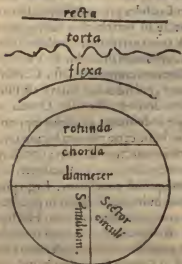 recta
torta
flexa
rotunda
chorda
diameter
Sector
circuli